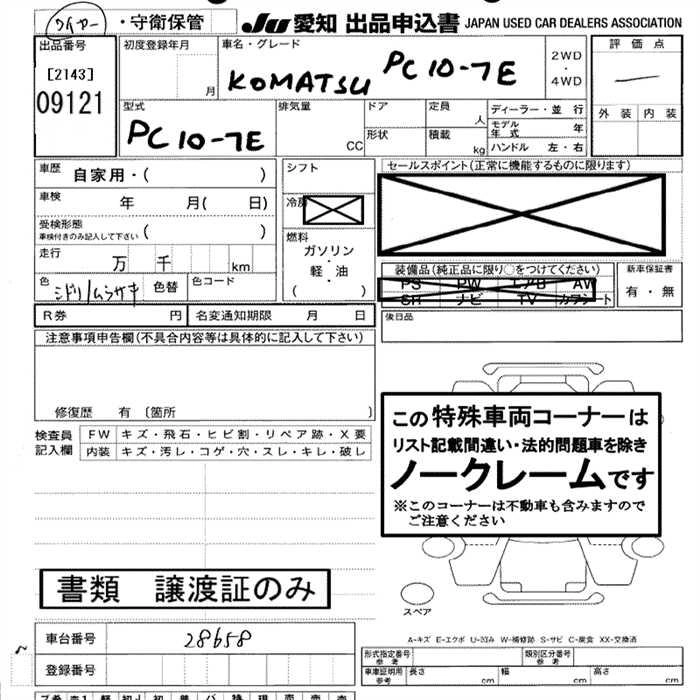 ・守衛保管 JU 愛知 出品申込書 JAPAN USED CAR DEALERS ASSOCIATION
出品番号
[2143]
09121
初度登録年月
月
車名・グレード
KOMATSU PC10-7E
2WD
・
4WD
評価点
外装 内装
型式
PC10-7E
排気量
CC
ドア
形状
定員
人
積載
kg
ディーラー・並行
モデル年式 年
ハンドル 左・右
車歴 自家用・( )
車検 年 月( 日)
受検形態
車検付きのみ記入して下さい ( )
走行 万 千 km
色 ミドリ/ムラサキ 色替 色コード
シフト
冷房
燃料
ガソリン
・
軽・油
( )
セールスポイント(正常に機能するものに限ります)
装備品(純正品に限り○をつけてください)
PS PW エアB AW
SR ナビ TV カワシート
新車保証書
有・無
R券 円 名変通知期限 月 日
後日品
注意事項申告欄(不具合内容等は具体的に記入して下さい)
修復歴 有 〔箇所 〕
検査員記入欄
FW キズ・飛石・ヒビ割・リペア跡・X要
内装 キズ・汚レ・コゲ・穴・スレ・キレ・破レ
この特殊車両コーナーは
リスト記載間違い・法的問題車を除き
ノークレームです
※このコーナーは不動車も含みますので
ご注意ください
書類 譲渡証のみ
スペア
A-キズ E-エクボ U-凹み W-補修跡 S-サビ C-腐食 XX-交換済
車台番号 28658
登録番号
型式指定番号
参考
類別区分番号
参考
車庫証明用
参考
長さ cm 幅 cm 高さ cm